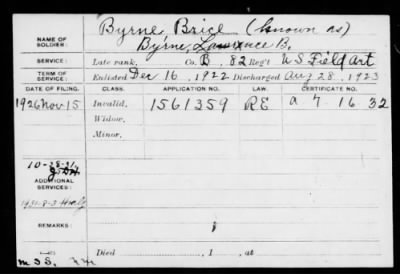 NAME OF SOLDIER: Byrne, Brice (known as)
Byrne, Lawrence B.
SERVICE: Late rank, Co. B, 82 Reg't U S Field Art
TERM OF SERVICE: Enlisted Dec 16, 1922 Discharged Aug 28, 1923
DATE OF FILING. CLASS. APPLICATION NO. CERTIFICATE NO.
1926 Nov 15 Invalid, 1561359 RE a 7 16 32
Widow,
Minor,
10-28-21
ADDITIONAL SERVICES:
1931-8-3
REMARKS:
Died , 1 , at